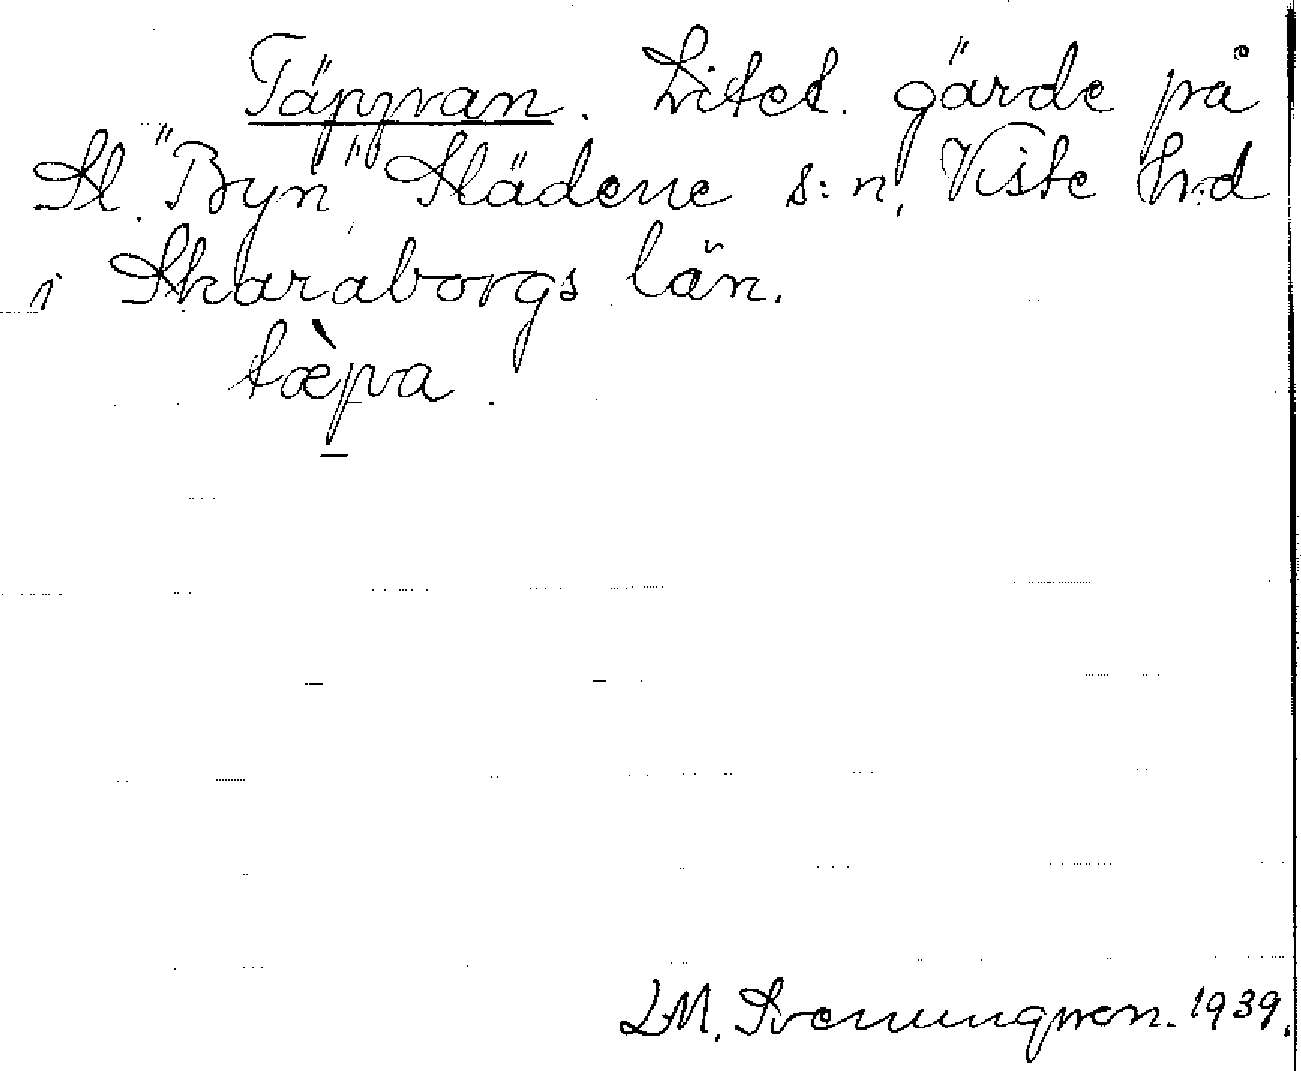 Täppan. Litet gärde på
St. "Byn" Slädene s:n, Viste h:d
i Skaraborgs län.
tæ̀pa
LM. Svenungsson. 1939.